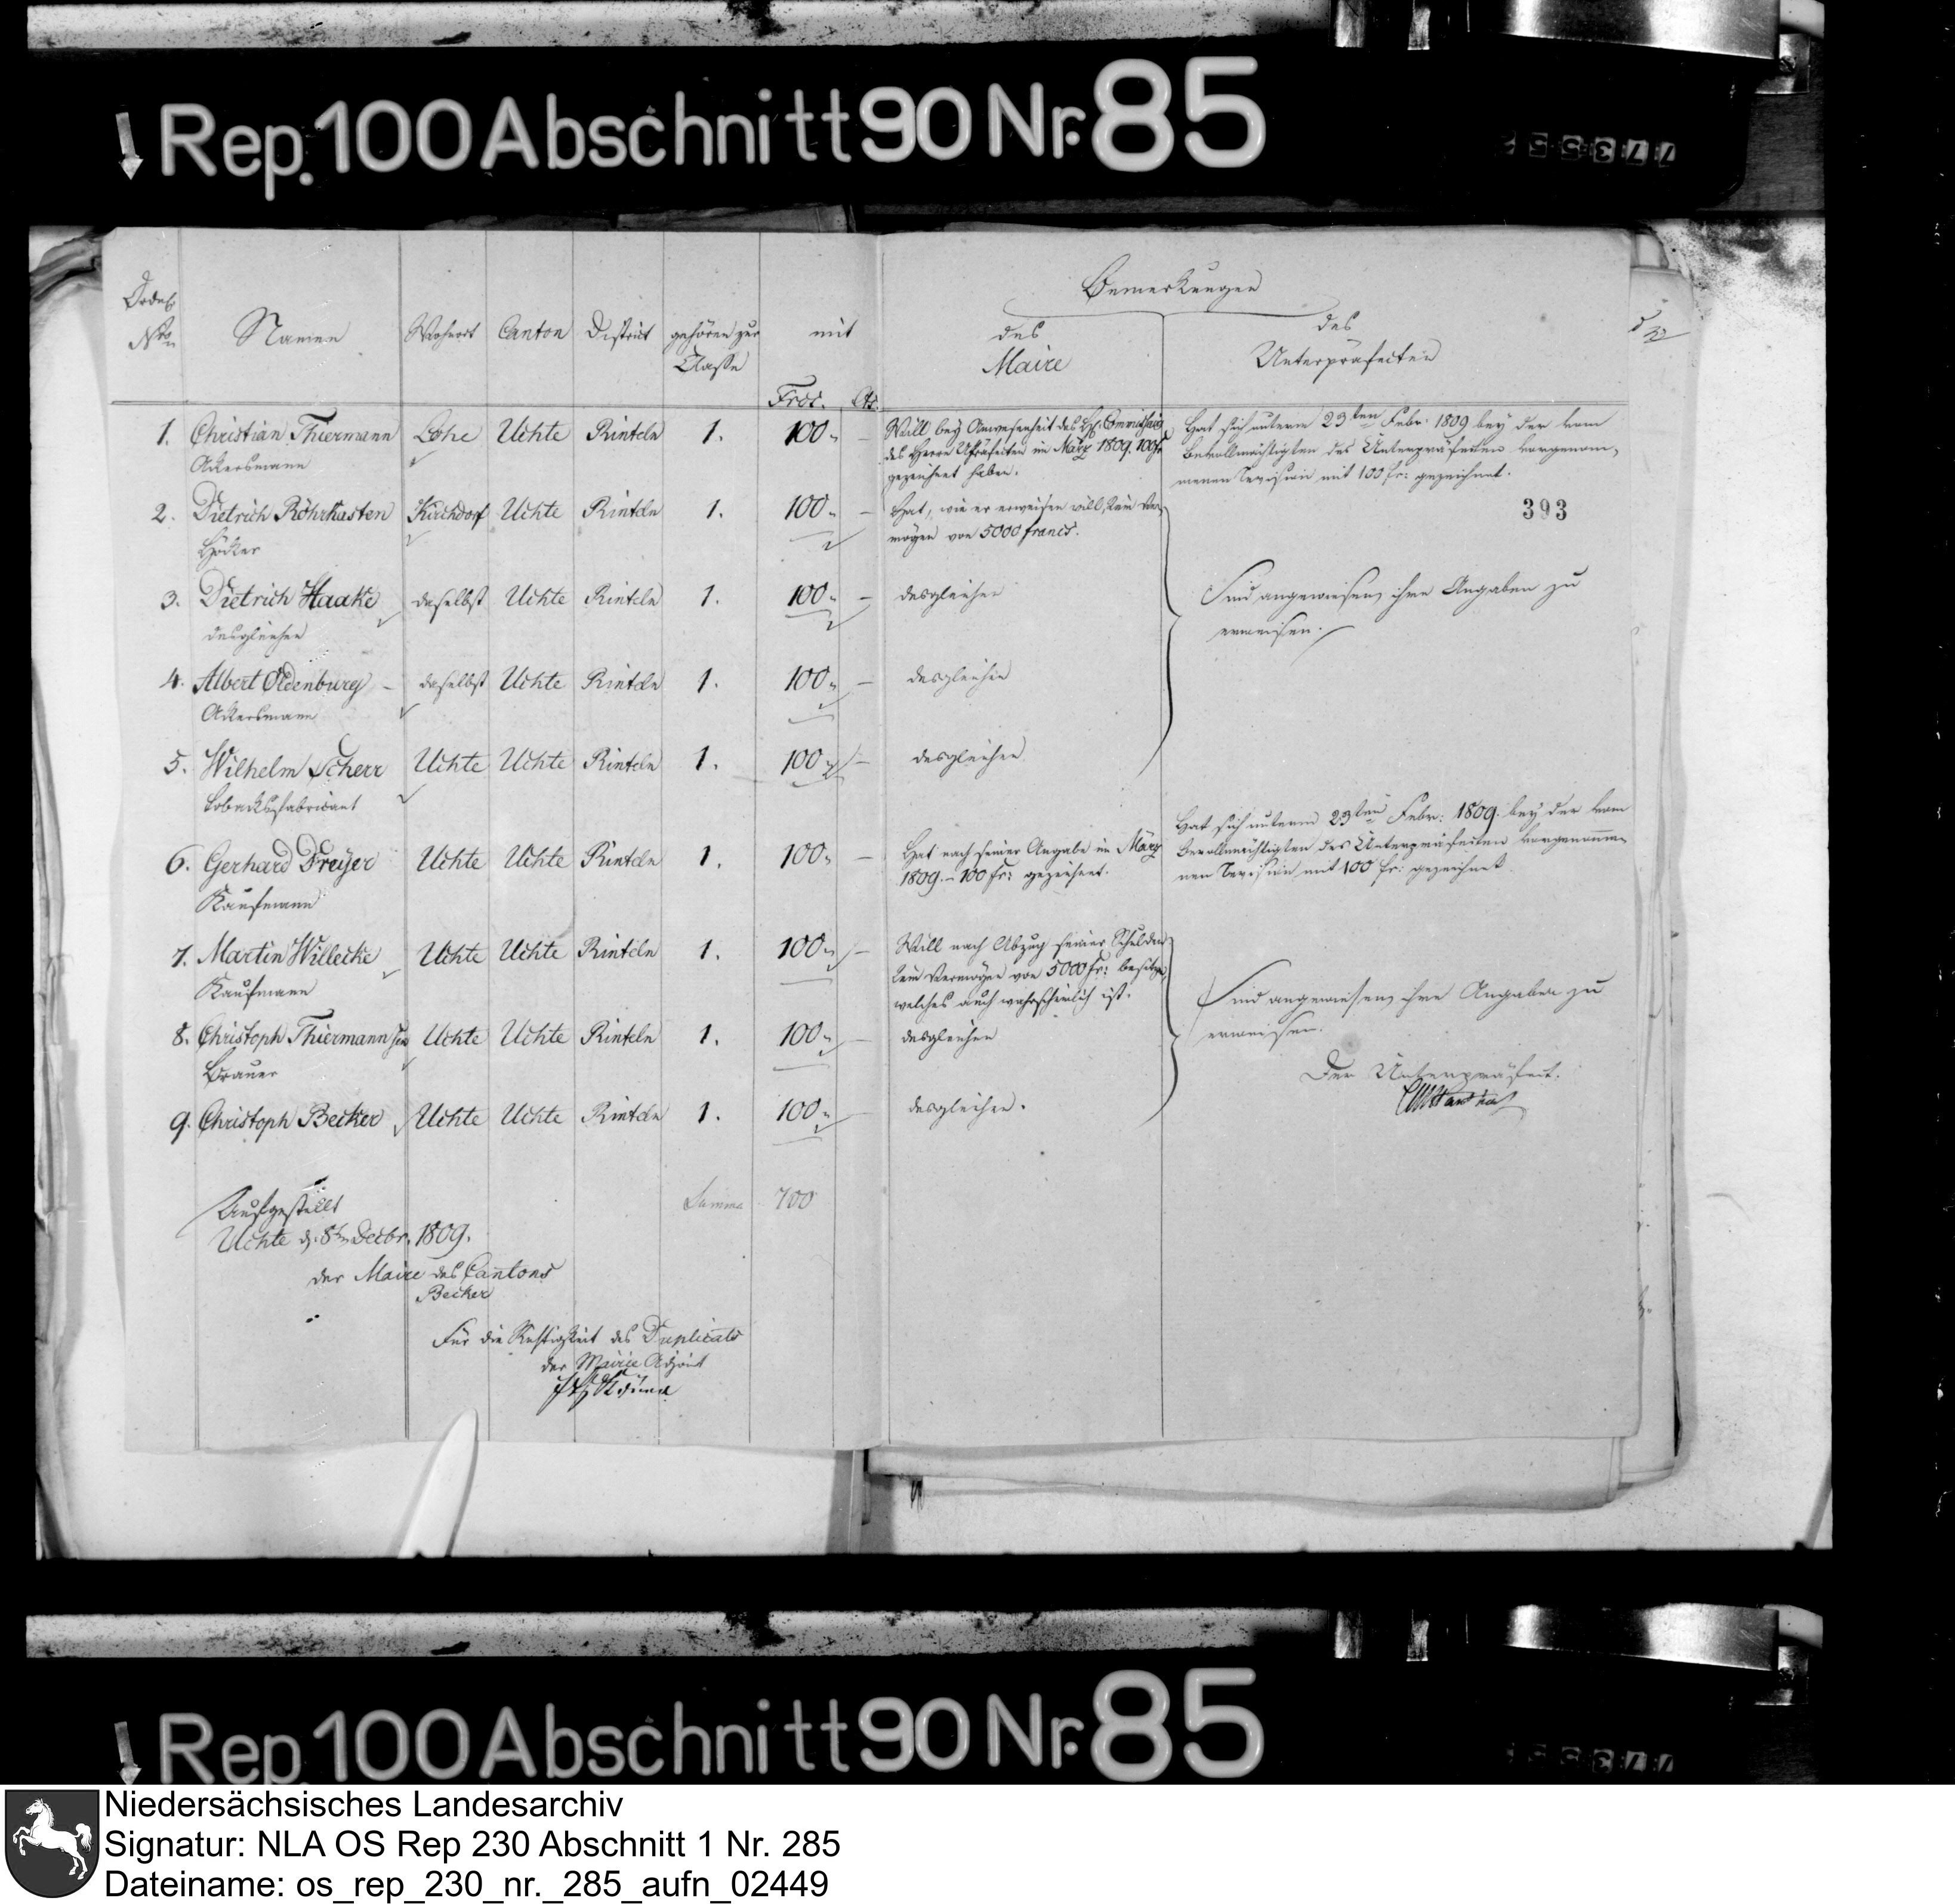 Rep. 100 Abschnitt 90 Nr. 85
773552
Bemerkungen
Ordn.
Nro
Namen
Wohnort
Canton
District
gehören zur
Classe
mit
Frcs. Cts.
des
Maire
des
Unterpräfecten
1. Christian Thiermann Lohe Uchte Rinteln 1. 100 „ –
Ackersmann
Will bey Anwesenheit des
des Herrn Upräfecten im März 1809. 100 fr
gezeichnet haben.
Hat sich unterm 23ten Febr: 1809 bey der vom
Bevollmächtigten des Unterpräfecten vorgenom-
menen Revision mit 100 fr: gezeichnet.
393
2. Dietrich Röhrkasten Kirchdorf Uchte Rinteln 1. 100 „ –
Höcker
Hat, wie er erweisen will, kein Ver-
mögen von 5000 francs.
3. Dietrich Haake daselbst Uchte Rinteln 1. 100 „ – desgleichen
desgleichen
Sind angewiesen, ihre Angaben zu
erweisen.
4. Albert Oldenburg – daselbst Uchte Rinteln 1. 100 „ – desgleichen
Ackersmann
5. Wilhelm Scherr Uchte Uchte Rinteln 1. 100 „ – desgleichen
Tobacksfabricant
6. Gerhard Dreyer Uchte Uchte Rinteln 1. 100 „ –
Kaufmann
Hat nach seiner Angabe im März
1809. – 100 fr: gezeichnet.
Hat sich unterm 23ten Febr: 1809. bey der vom
Bevollmächtigten des Unterpräfecten vorgenomme-
nen Revision mit 100 fr: gezeichnet
7. Martin Willecke Uchte Uchte Rinteln 1. 100 „ –
Kaufmann
Will nach Abzug seiner Schulden
kein Vermögen von 5000 fr: besitzen,
welches auch wahrscheinlich ist.
Sind angewiesen, ihre Angaben zu
erweisen.
8. Christoph Thiermann sen Uchte Uchte Rinteln 1. 100 „ – desgleichen
Brauer
9. Christoph Becker Uchte Uchte Rinteln 1. 100 „ – desgleichen.
Der Unterpräfect.
Summa 700
Aufgestellt
Uchte d. 8ten Decbr. 1809.
der Maire des Cantons
Becker
Für die Richtigkeit des Duplicats
der Mairie Adjoint
Rep. 100 Abschnitt 90 Nr. 85
Niedersächsisches Landesarchiv
Signatur: NLA OS Rep 230 Abschnitt 1 Nr. 285
Dateiname: os_rep_230_nr._285_aufn_02449